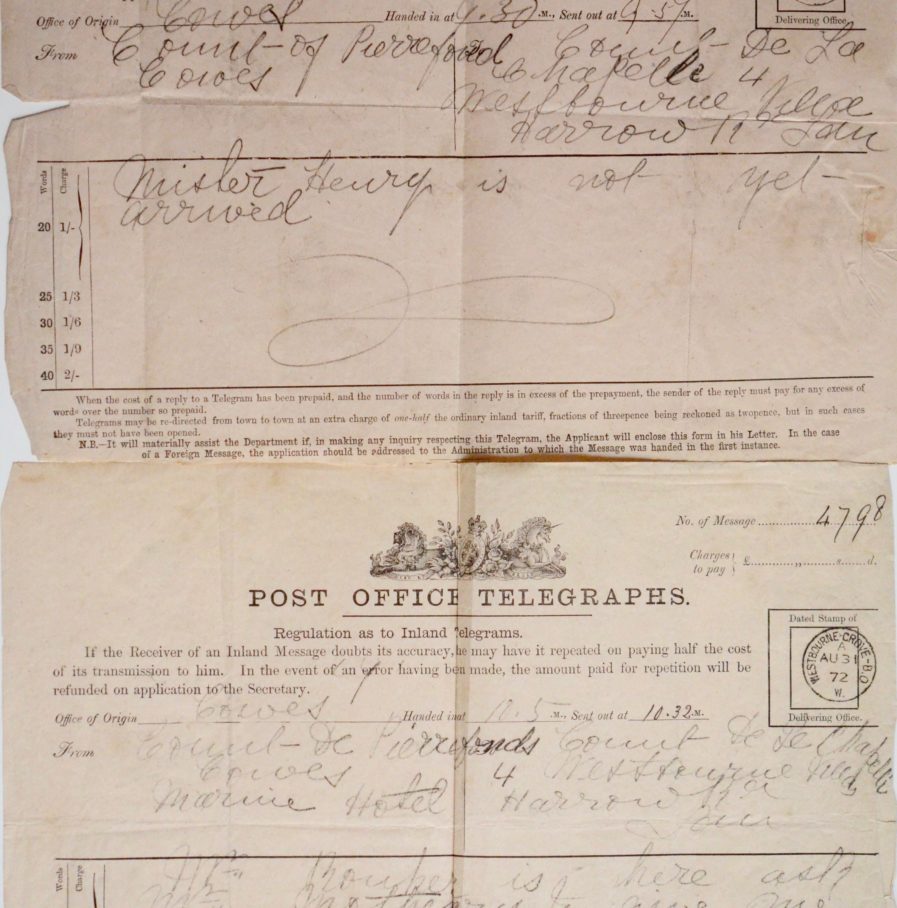 Office of Origin Cowes Handed in at 9.30 .M., Sent out at 9.57 .M.
Delivering Office.
From Count of Pierrefond Count De La
Cowes Chapelle 4
Westbourne Villa
Harrow Rd Lon
Words Charge
Mister Henry is not yet
arrived
20 1/-
25 1/3
30 1/6
35 1/9
40 2/-
When the cost of a reply to a Telegram has been prepaid, and the number of words in the reply is in excess of the prepayment, the sender of the reply must pay for any excess of
words over the number so prepaid.
Telegrams may be re-directed from town to town at an extra charge of one-half the ordinary inland tariff, fractions of threepence being reckoned as twopence, but in such cases
they must not have been opened.
N.B.—It will materially assist the Department if, in making any inquiry respecting this Telegram, the Applicant will enclose this form in his Letter. In the case
of a Foreign Message, the application should be addressed to the Administration to which the Message was handed in the first instance.
No. of Message 4798
Charges to pay £ „ s. d.
POST OFFICE TELEGRAPHS.
Regulation as to Inland Telegrams.
If the Receiver of an Inland Message doubts its accuracy, he may have it repeated on paying half the cost
of its transmission to him. In the event of an error having been made, the amount paid for repetition will be
refunded on application to the Secretary.
Dated Stamp of
WESTBOURNE-GROVE-B.O
A
AU 31
72
W.
Delivering Office.
Office of Origin Cowes Handed in at 10.5 .M., Sent out at 10.32 .M.
From Count De Pierrefonds Count De La Chapelle
Cowes 4 Westbourne Villas
Marine Hotel Harrow Rd
Lon
Words Charge
Mr Rouher is here ask